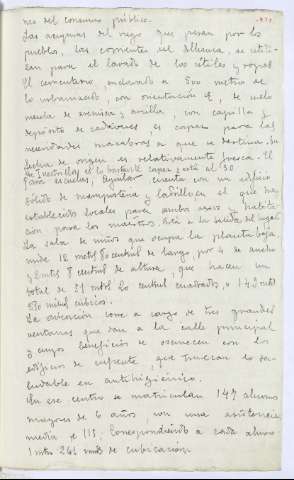 nes del consumo público.
Las acequias del riego que pasan por los
pueblos, las corrientes del Alhama, se utili-
zan para el lavado de los útiles y ropas
El cementerio, enclavado a 500 metros de
lo urbanizado, con orientación E, de suelo
mezcla de arenisca y arcilla, con capilla y
depósito de cadáveres, es capaz para las
necesidades macabras a que se destina. Su
fecha de origen es relativamente fresca. El
de Inestrillas es lo bastante capaz y está al SO
Para escuelas, Aguilar cuenta con un edificio
sólido de mampostería y ladrillo en el que ha
establecido locales para ambos sexos y habita-
ción para los maestros. Está a la salida del lugar
La sala de niños que ocupa la planta baja
mide 12 metrs 80 centml de largo, por 4 de ancho
y 2 mts 8 centml de altura, que hacen un
total de 51 mtrs 20 centml cuadrados, o 142 mtrs
 milml cúbicos.
La aireación corre a cargo de tres grandes
ventanas que dan a la calle principal
y cuyos beneficios se oscurecen con los
edificios de enfrente, que truecan lo sa-
ludable en antihigiénico.
En ese centro se matriculan 147 alumnos
mayores de 6 años, con una asistencia
media de 115. Correspondiendo a cada alumno
1 mtrs 241 mls de cubicación